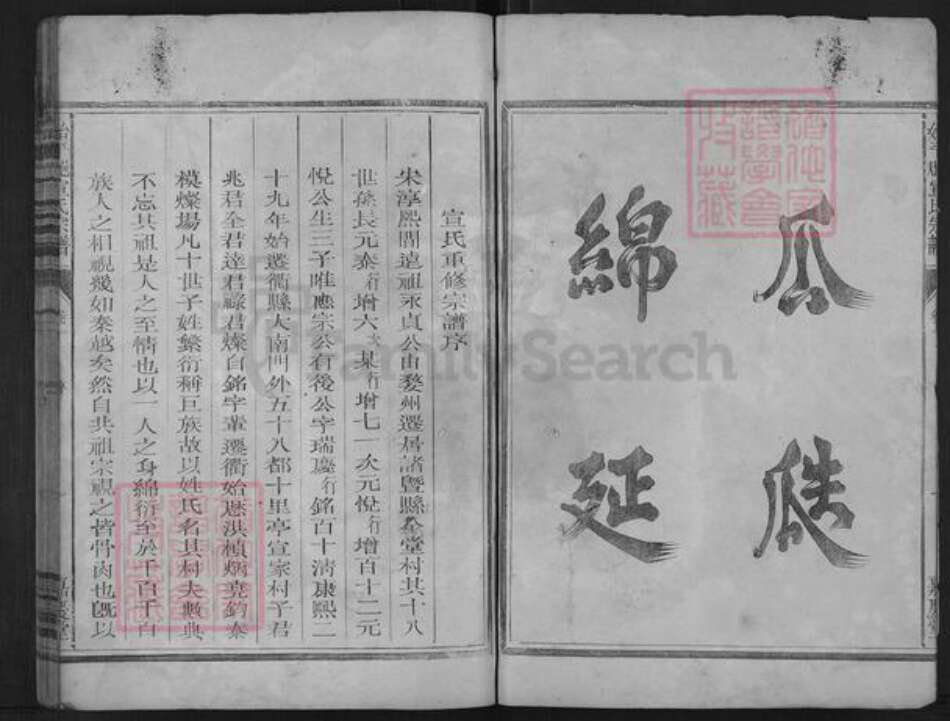 瓜瓞
綿延
宣氏重修宗譜序
宋淳熙間遠祖永貞公由婺州遷居諸暨縣㕘堂村其十八
世孫長元泰行增六次某行增七一次元悅行增百十二元
悅公生三子唯應宗公有後公字瑞慶行銘百十清康熙二
十九年始遷衢縣大南門外五十八都十里亭宣家村子君
兆君全君達君祿君燦自銘字輩遷衢始歷洪楨炳堯鈞泰
模燦場凡十世子姓繁衍稱巨族故以姓氏名其村夫數典
不忘其祖是人之至情也以一人之身綿衍至於千百千百
族人之相視幾如秦越矣然自共祖宗視之皆骨肉也旣以
FamilySearch